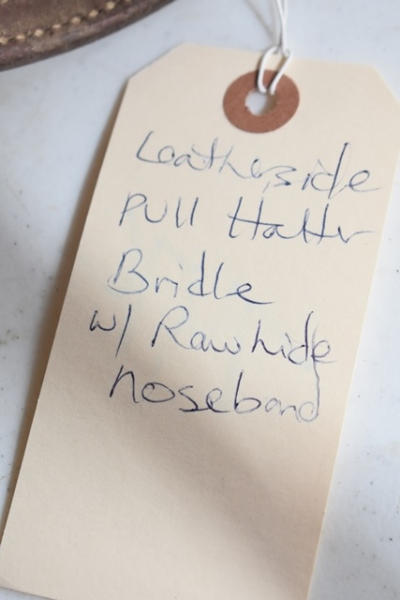 Leatherside
Pull Halter
Bridle
w/ Rawhide
noseband